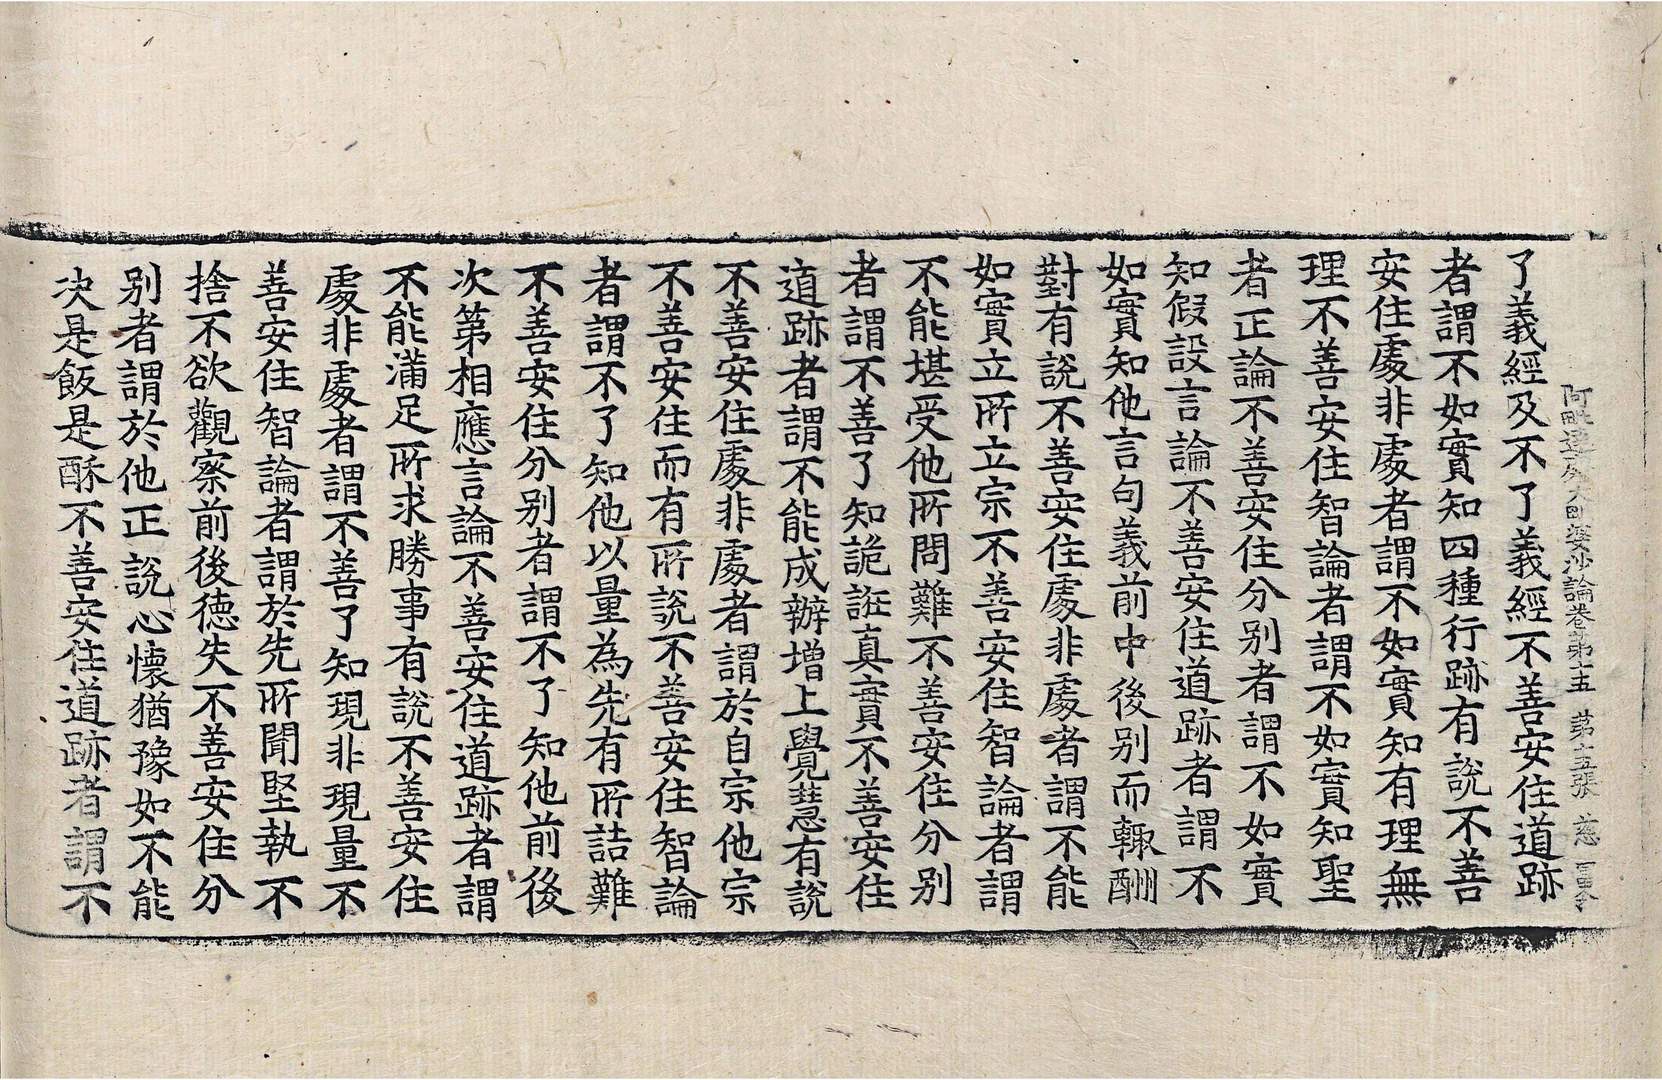 阿毗達磨大毗婆沙論卷第十五 第十五張 慈
了義經及不了義經不善安住道跡
者謂不如實知四種行跡有說不善
安住處非處者謂不如實知有理無
理不善安住智論者謂不如實知聖
者正論不善安住分別者謂不如實
知假設言論不善安住道跡者謂不
如實知他言句義前中後別而輙酬
對有說不善安住處非處者謂不能
如實立所立宗不善安住智論者謂
不能堪受他所問難不善安住分別
者謂不善了知詭誑真實不善安住
道跡者謂不能成辦增上覺慧有說
不善安住處非處者謂於自宗他宗
不善安住而有所說不善安住智論
者謂不了知他以量為先有所詰難
不善安住分別者謂不了知他前後
次第相應言論不善安住道跡者謂
不能滿足所求勝事有說不善安住
處非處者謂不善了知現非現量不
善安住智論者謂於先所聞堅執不
捨不欲觀察前後德失不善安住分
別者謂於他正說心懷猶豫如不能
決是飯是酥不善安住道跡者謂不